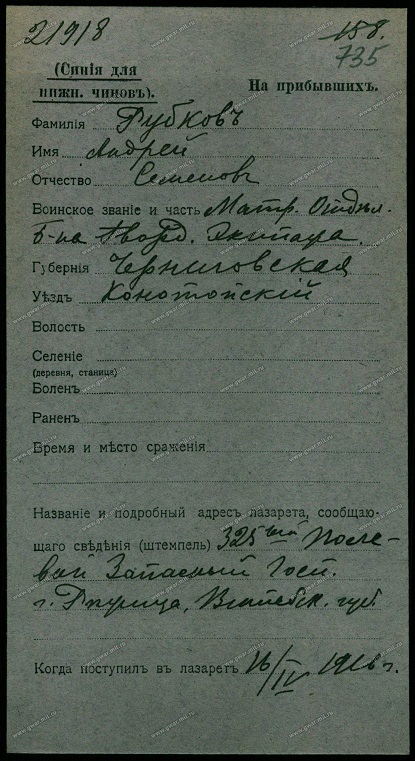 21918
158.
735
(Синія для
нижн. чиновъ).
На прибывшихъ.
Фамилія Губковъ
Имя Андрей
Отчество Семеновъ
Воинское званіе и часть Матр. Отдѣл.
б-на Гвард. Экипажа.
Губернія Черниговская
Уѣздъ Конотопскій
Волость
Селеніе
(деревня, станица)
Боленъ
Раненъ
Время и мѣсто сраженія
Названіе и подробный адресъ лазарета, сообщаю-
щаго свѣдѣнія (штемпель) 325 Поле-
вой Запасный Госп.
г. Рѣжица, Витебск. губ.
Когда поступилъ въ лазаретъ 16/IV 1916 г.